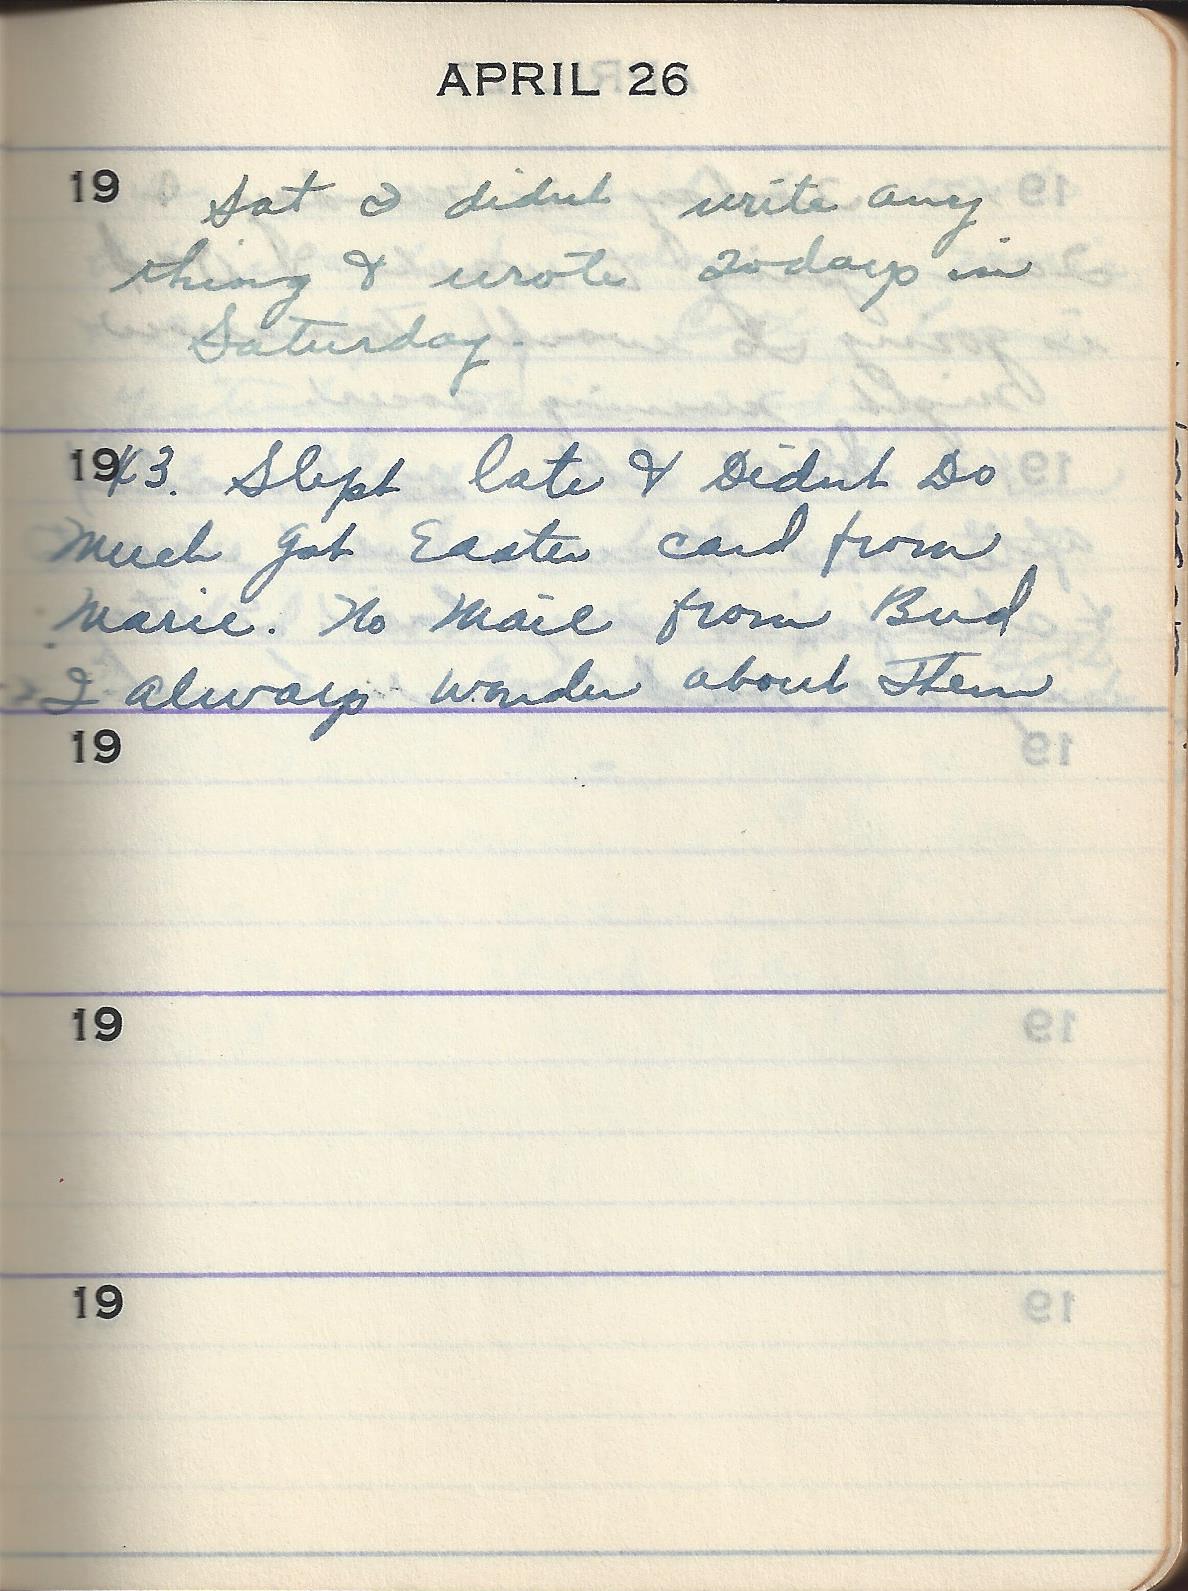 APRIL 26
19 Sat I didnt write any
thing & wrote Todays in
Saturday.
1943. Slept late & Didnt Do
Much got Easter card from
Marie. No Mail from Bud
I always wonder about Them
19
19
19